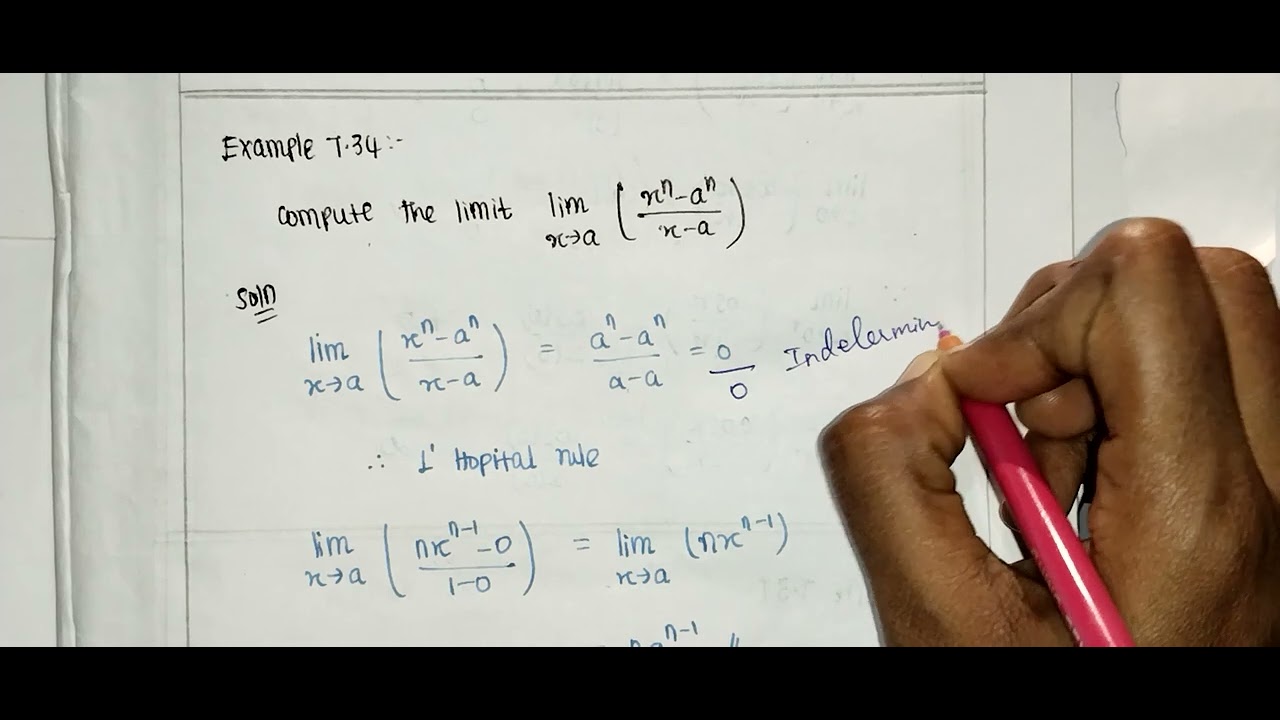 Example 7.34:-
compute the limit lim x→a (xⁿ-aⁿ / x-a)
Soln
lim x→a (xⁿ-aⁿ / x-a) = aⁿ-aⁿ / a-a = 0/0 Indetermin
∴ L' Hopital rule
lim x→a (nxⁿ⁻¹-0 / 1-0) = lim x→a (nxⁿ⁻¹)